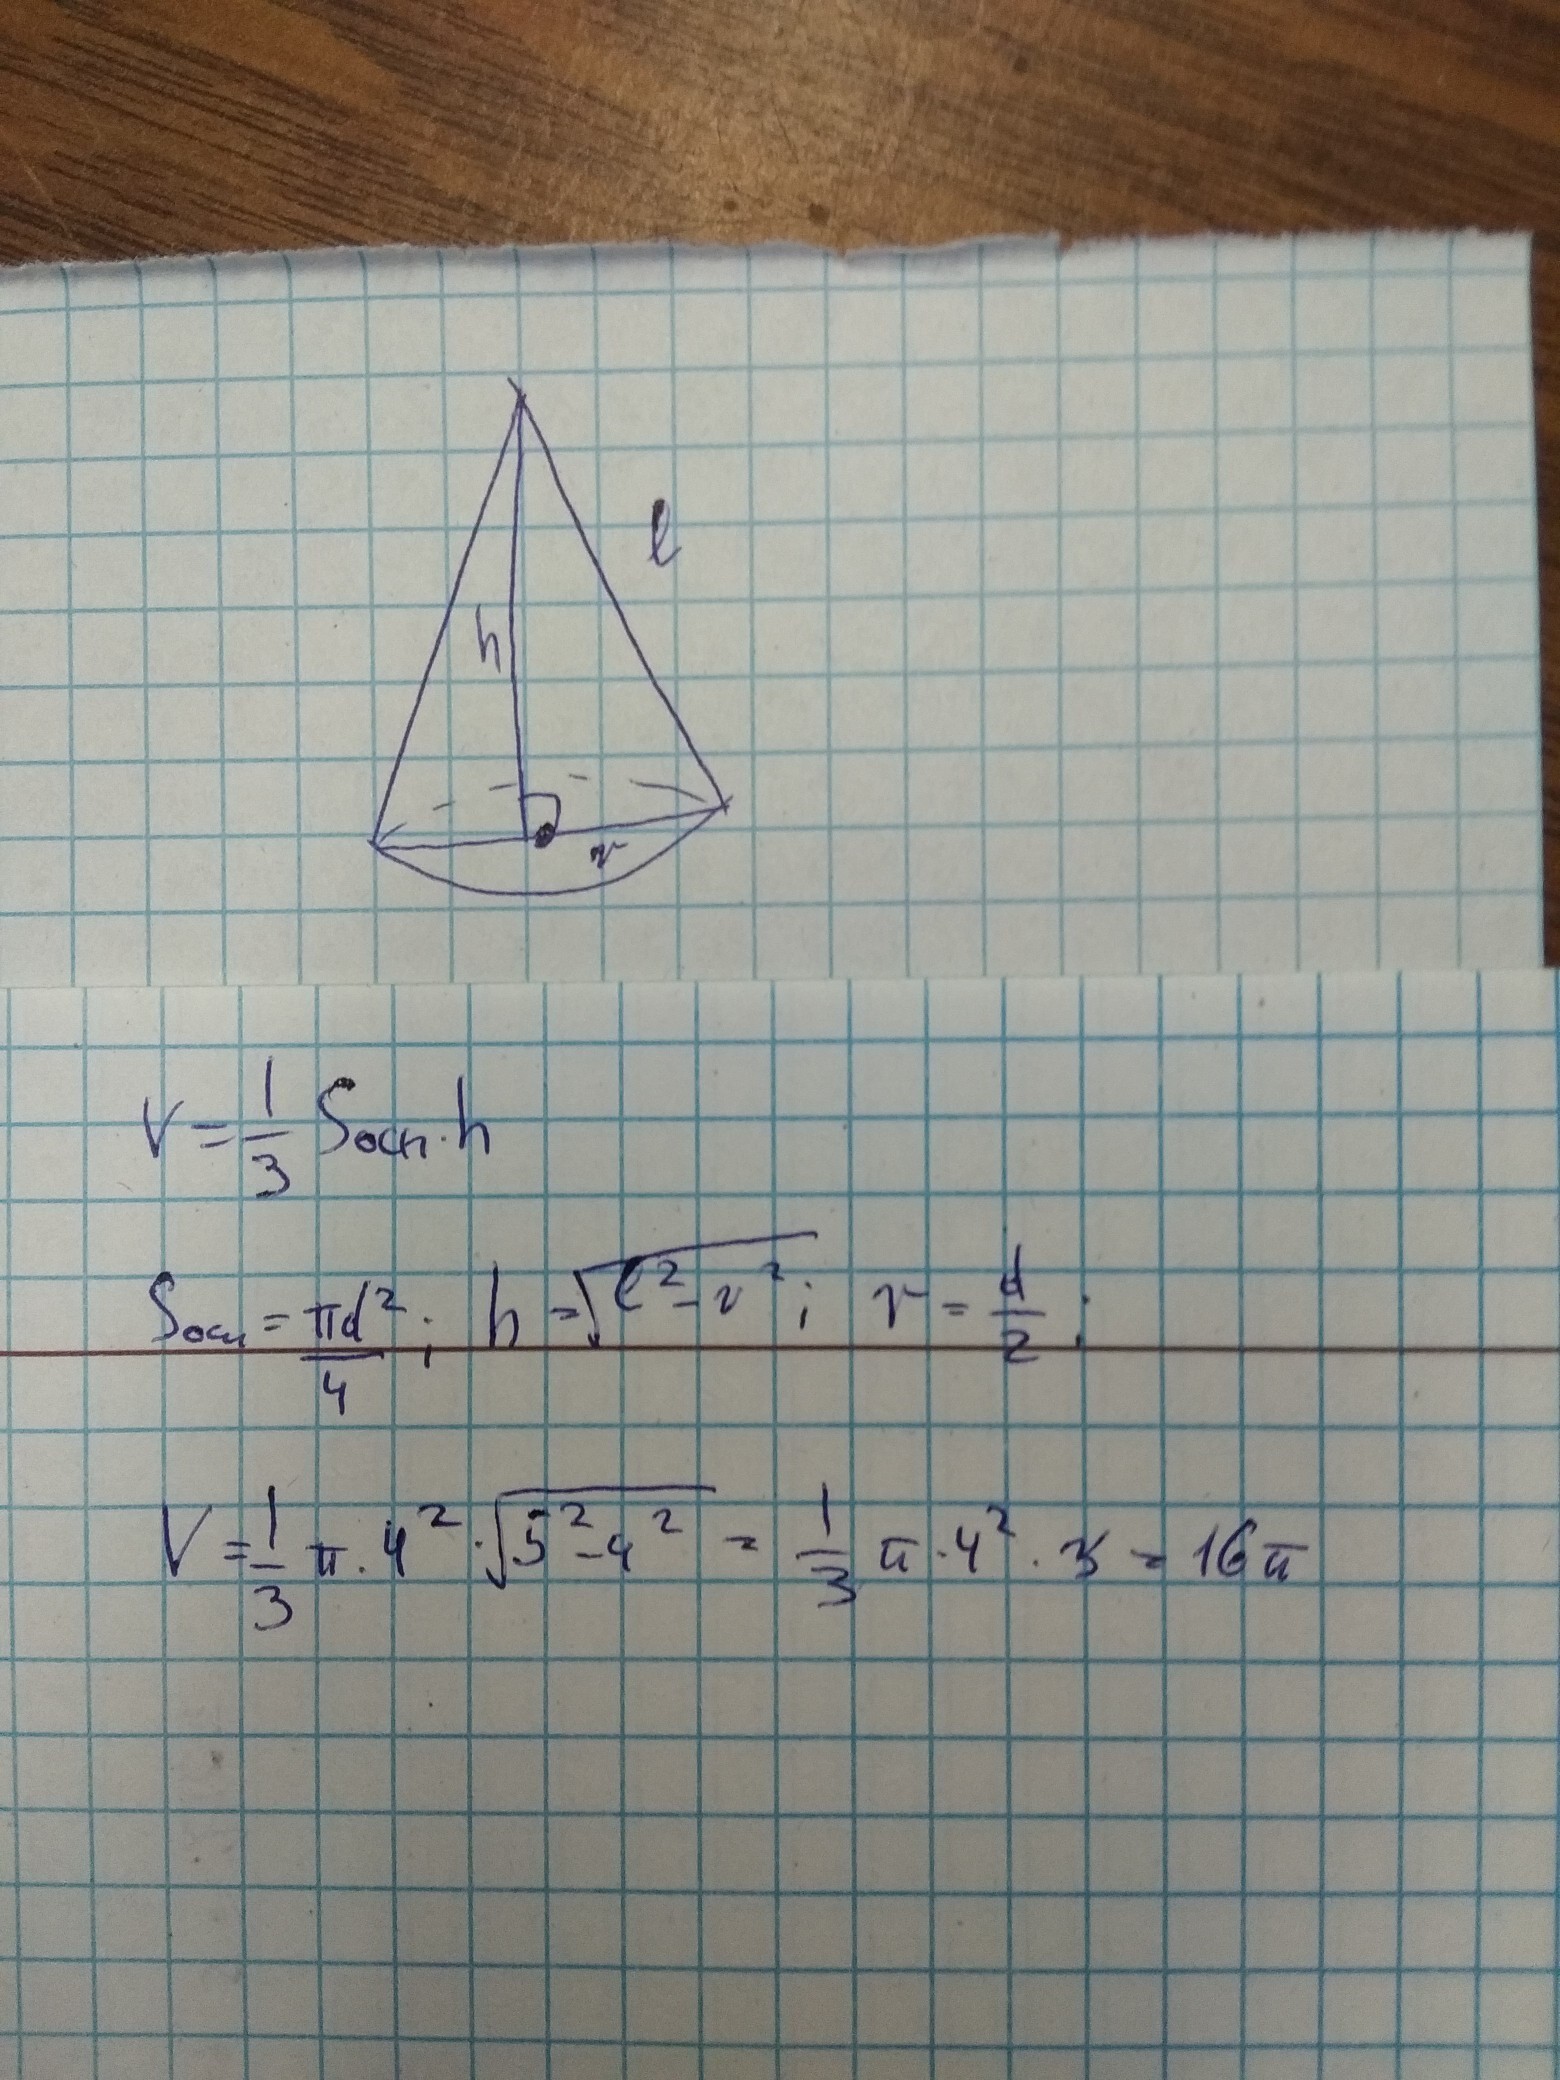 l
h
r
V = 1/3 Sосн · h
Sосн = πd²/4 ; h = √(l² - r²) ; r = d/2 ;
V = 1/3 π · 4² · √(5² - 4²) = 1/3 π · 4² · 3 = 16π